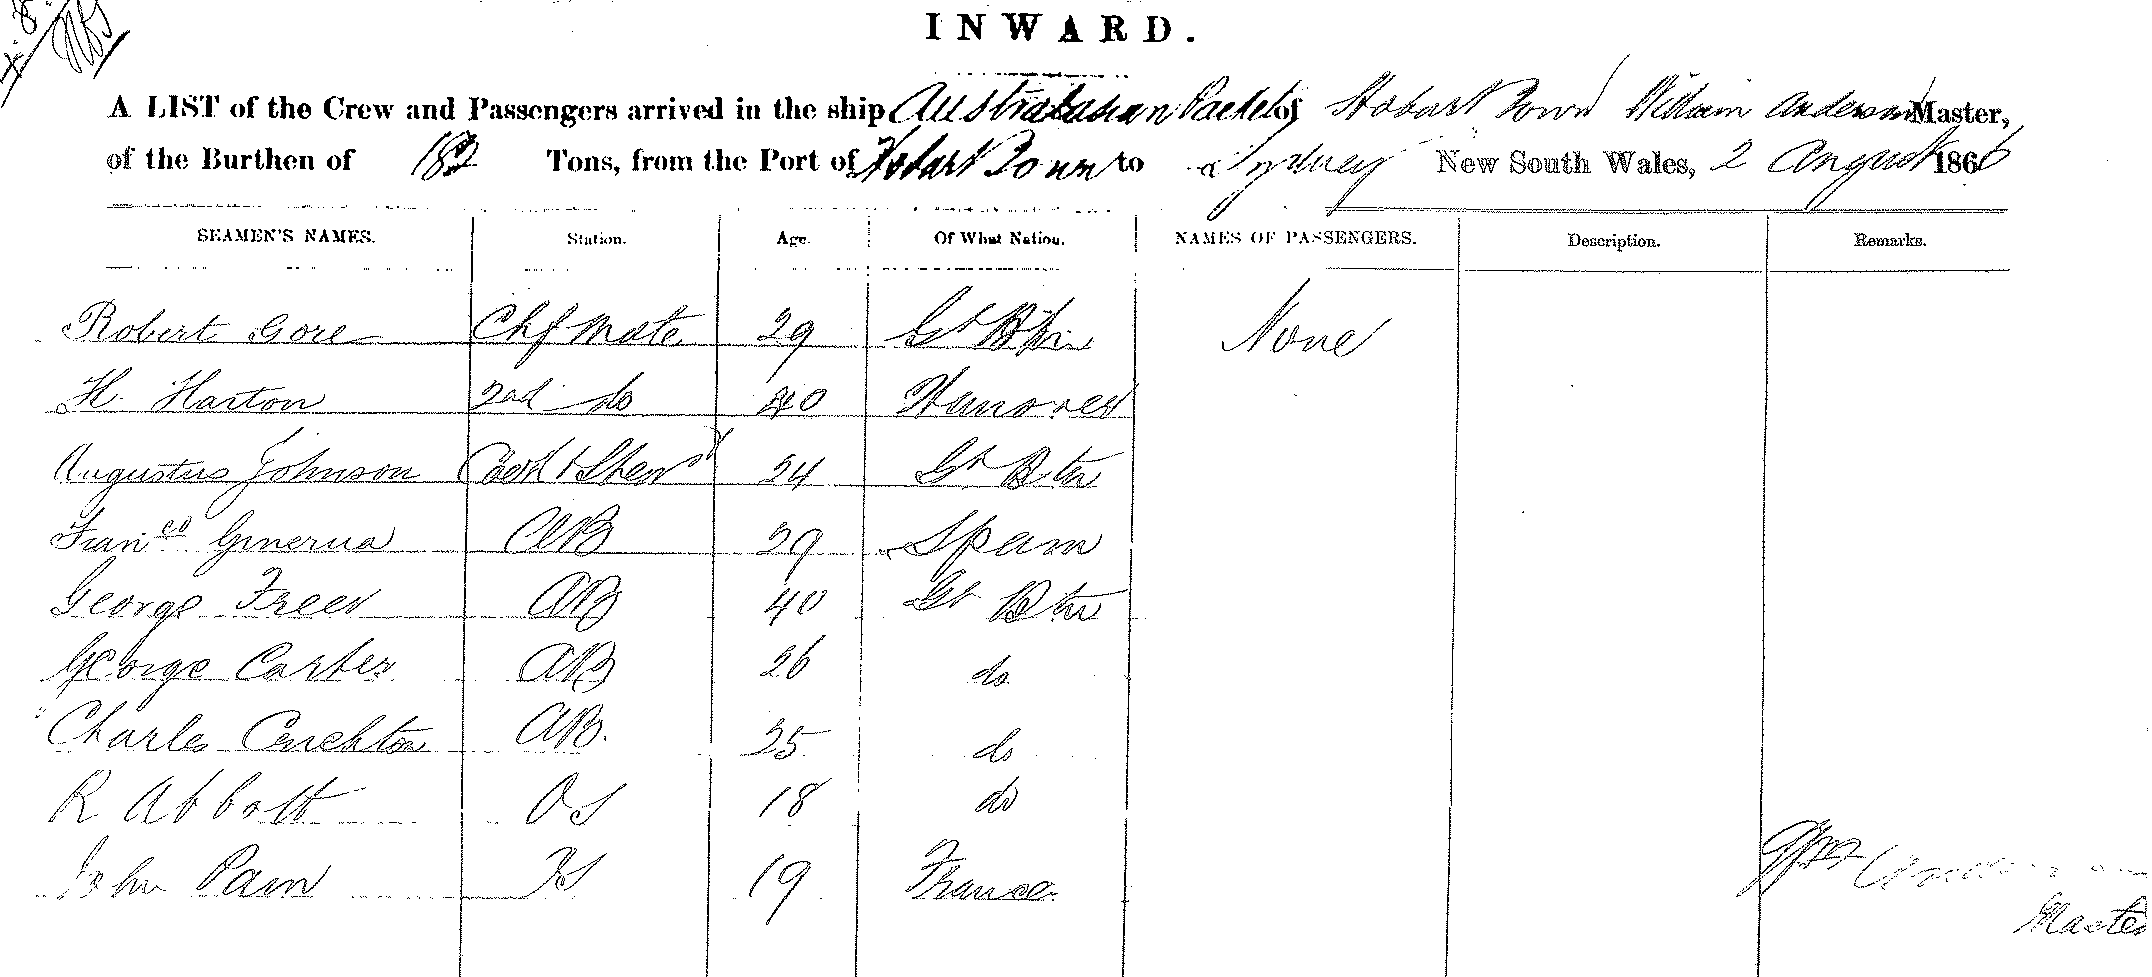 INWARD.
A LIST of the Crew and Passengers arrived in the ship Australasian Packet of Hobart Town William Anderson Master,
of the Burthen of 182 Tons, from the Port of Hobart Town to Sydney New South Wales, 2 August 1866
SEAMEN'S NAMES. Station. Age. Of What Nation. NAMES OF PASSENGERS. Description. Remarks.
Robert Gore Chf Mate 29 Gt Btn None
H. Harton 2nd do 40 Hanover
Augustus Johnson Cook & Stewd 24 Gt Btn
Franco AB 29 Spain
George Freer AB 40 Gt Btn
George Carter AB 26 do
Charles Crichton AB. 25 do
R Abbott OS 18 do
John Pain OS 19 France
Wm Anderson
Master